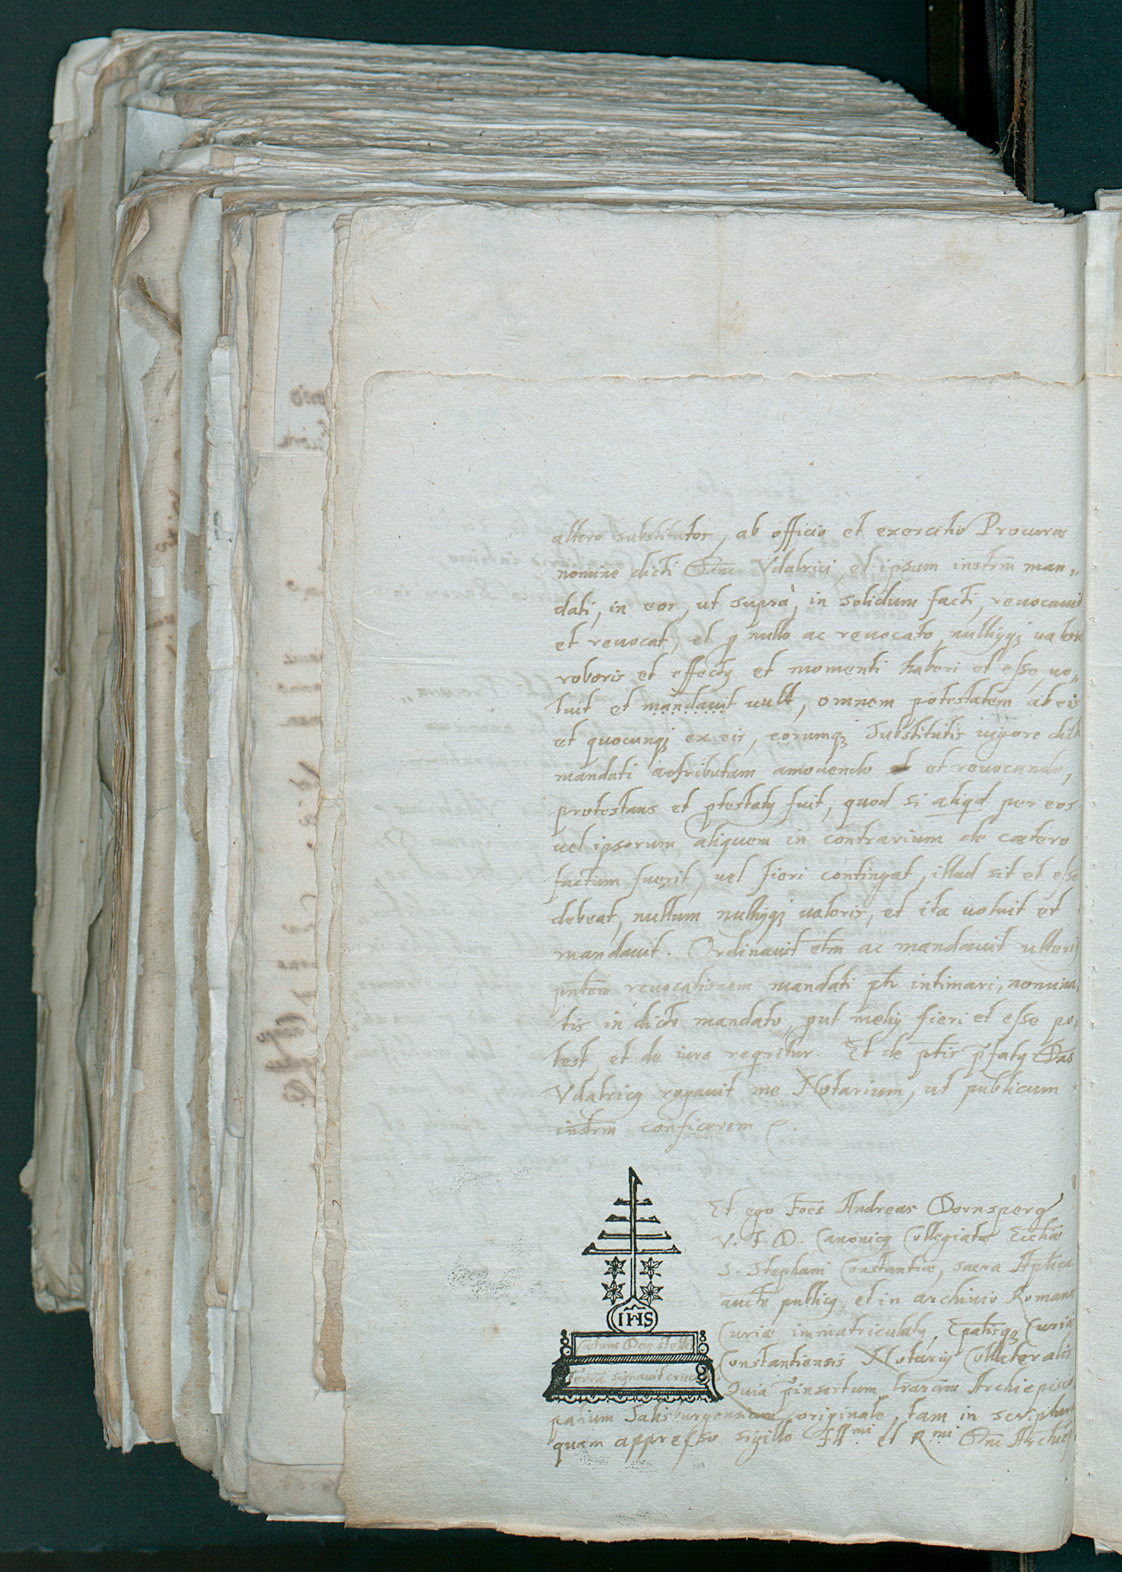 altero substitutos, ab officio et exercitio Procurae
nomine dicti Dni Vdalrici et ipsum instrm man„
dati, in eos, ut suprà, in solidum facti, reuocauit
et reuocat, et p nullo ac reuocato, nulliusq; valor
roboris et effectus et momenti haberi et esse, uo„
luit et mandauit uult, omnem potestatem ab eis
et quocunq; ex eis, eorumq; Substitutis uigore dicti
mandati adtributam amouendo et reuocando,
protestans et ptestatus fuit, quod si aliqd per eos
uel ipsorum aliquem in contrarium de caetero
factum fuerit, uel fieri contingat, illud sit et esse
debeat, nullum nulliusq; ualoris, et ita uoluit et
mandauit. Ordinauit etm ac mandauit ulteri
pntem reuocationem mandati pti intimari, nomina
tis in dicto mandato put melius fieri et esse po
test, et de iure reqritur. Et de ptis pfatus Dns
Vdalricus rogauit me Notarium, ut publicum
instrm conficerem
Et ego Joes Andreas Dornsperg
V. J. D. Canonicus Collegiatae Ecclae
S. Stephani Constantiae, sacra Aplica
aucte publicus, et in archiuio Romanae
Curiae immatriculatus, Epatisq; Curiae
Constantiensis Notarius Collateralis
IHS
terra signauit cruce
Quia pinsertum trarum Archiepisco
patium Salisburgensium originale, tam in scriptura
quam appresso sigillo Illmi et Rmi Dni Archiep